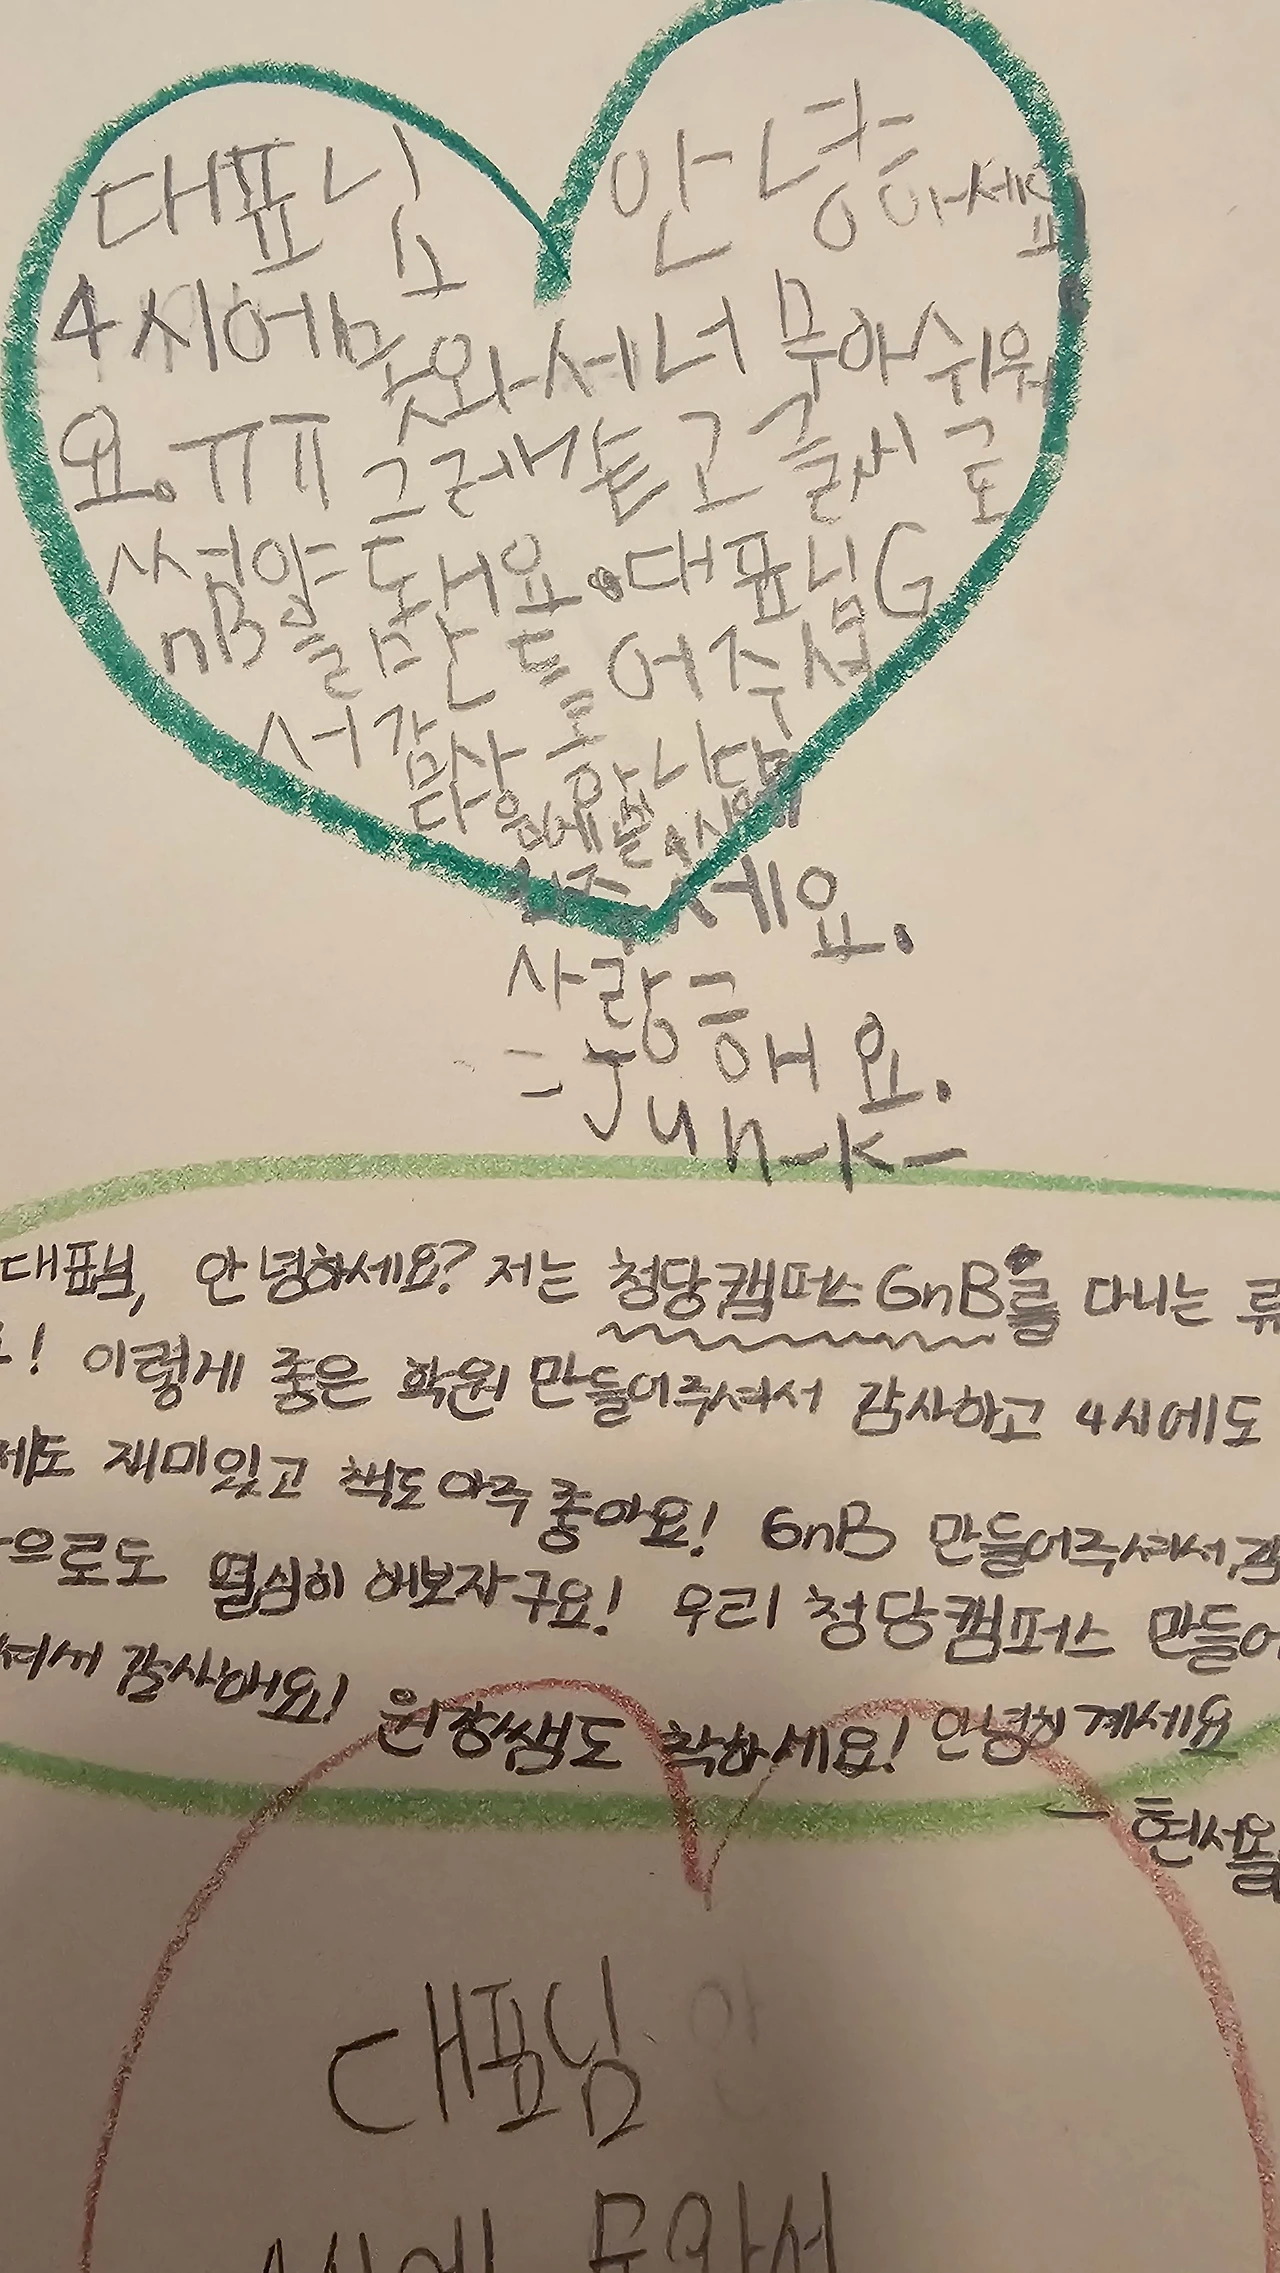 대표님 안녕하세요
4시에 못와세너 무 아쉬워
요. ㅠㅠ 그래 고 글씨 로
대표님 G
nB를 만들 어주셔
서 감사 합니다
다음에
세요.
사랑
해 요.
Jun-k-
대표님, 안녕하세요? 저는 청당캠퍼스 GnB를 다니는 류
! 이렇게 좋은 학원 만들어주셔서 감사하고 4시에도
제도 재미있고 책도 아주 좋아요! GnB 만들어주셔서 감
으로도 열심히 해보자구요! 우리 청당캠퍼스 만들어
셔서 감사해요! 원장쌤도 착하세요! 안녕히계세요
- 현서올림
대표님
4시에 못와서